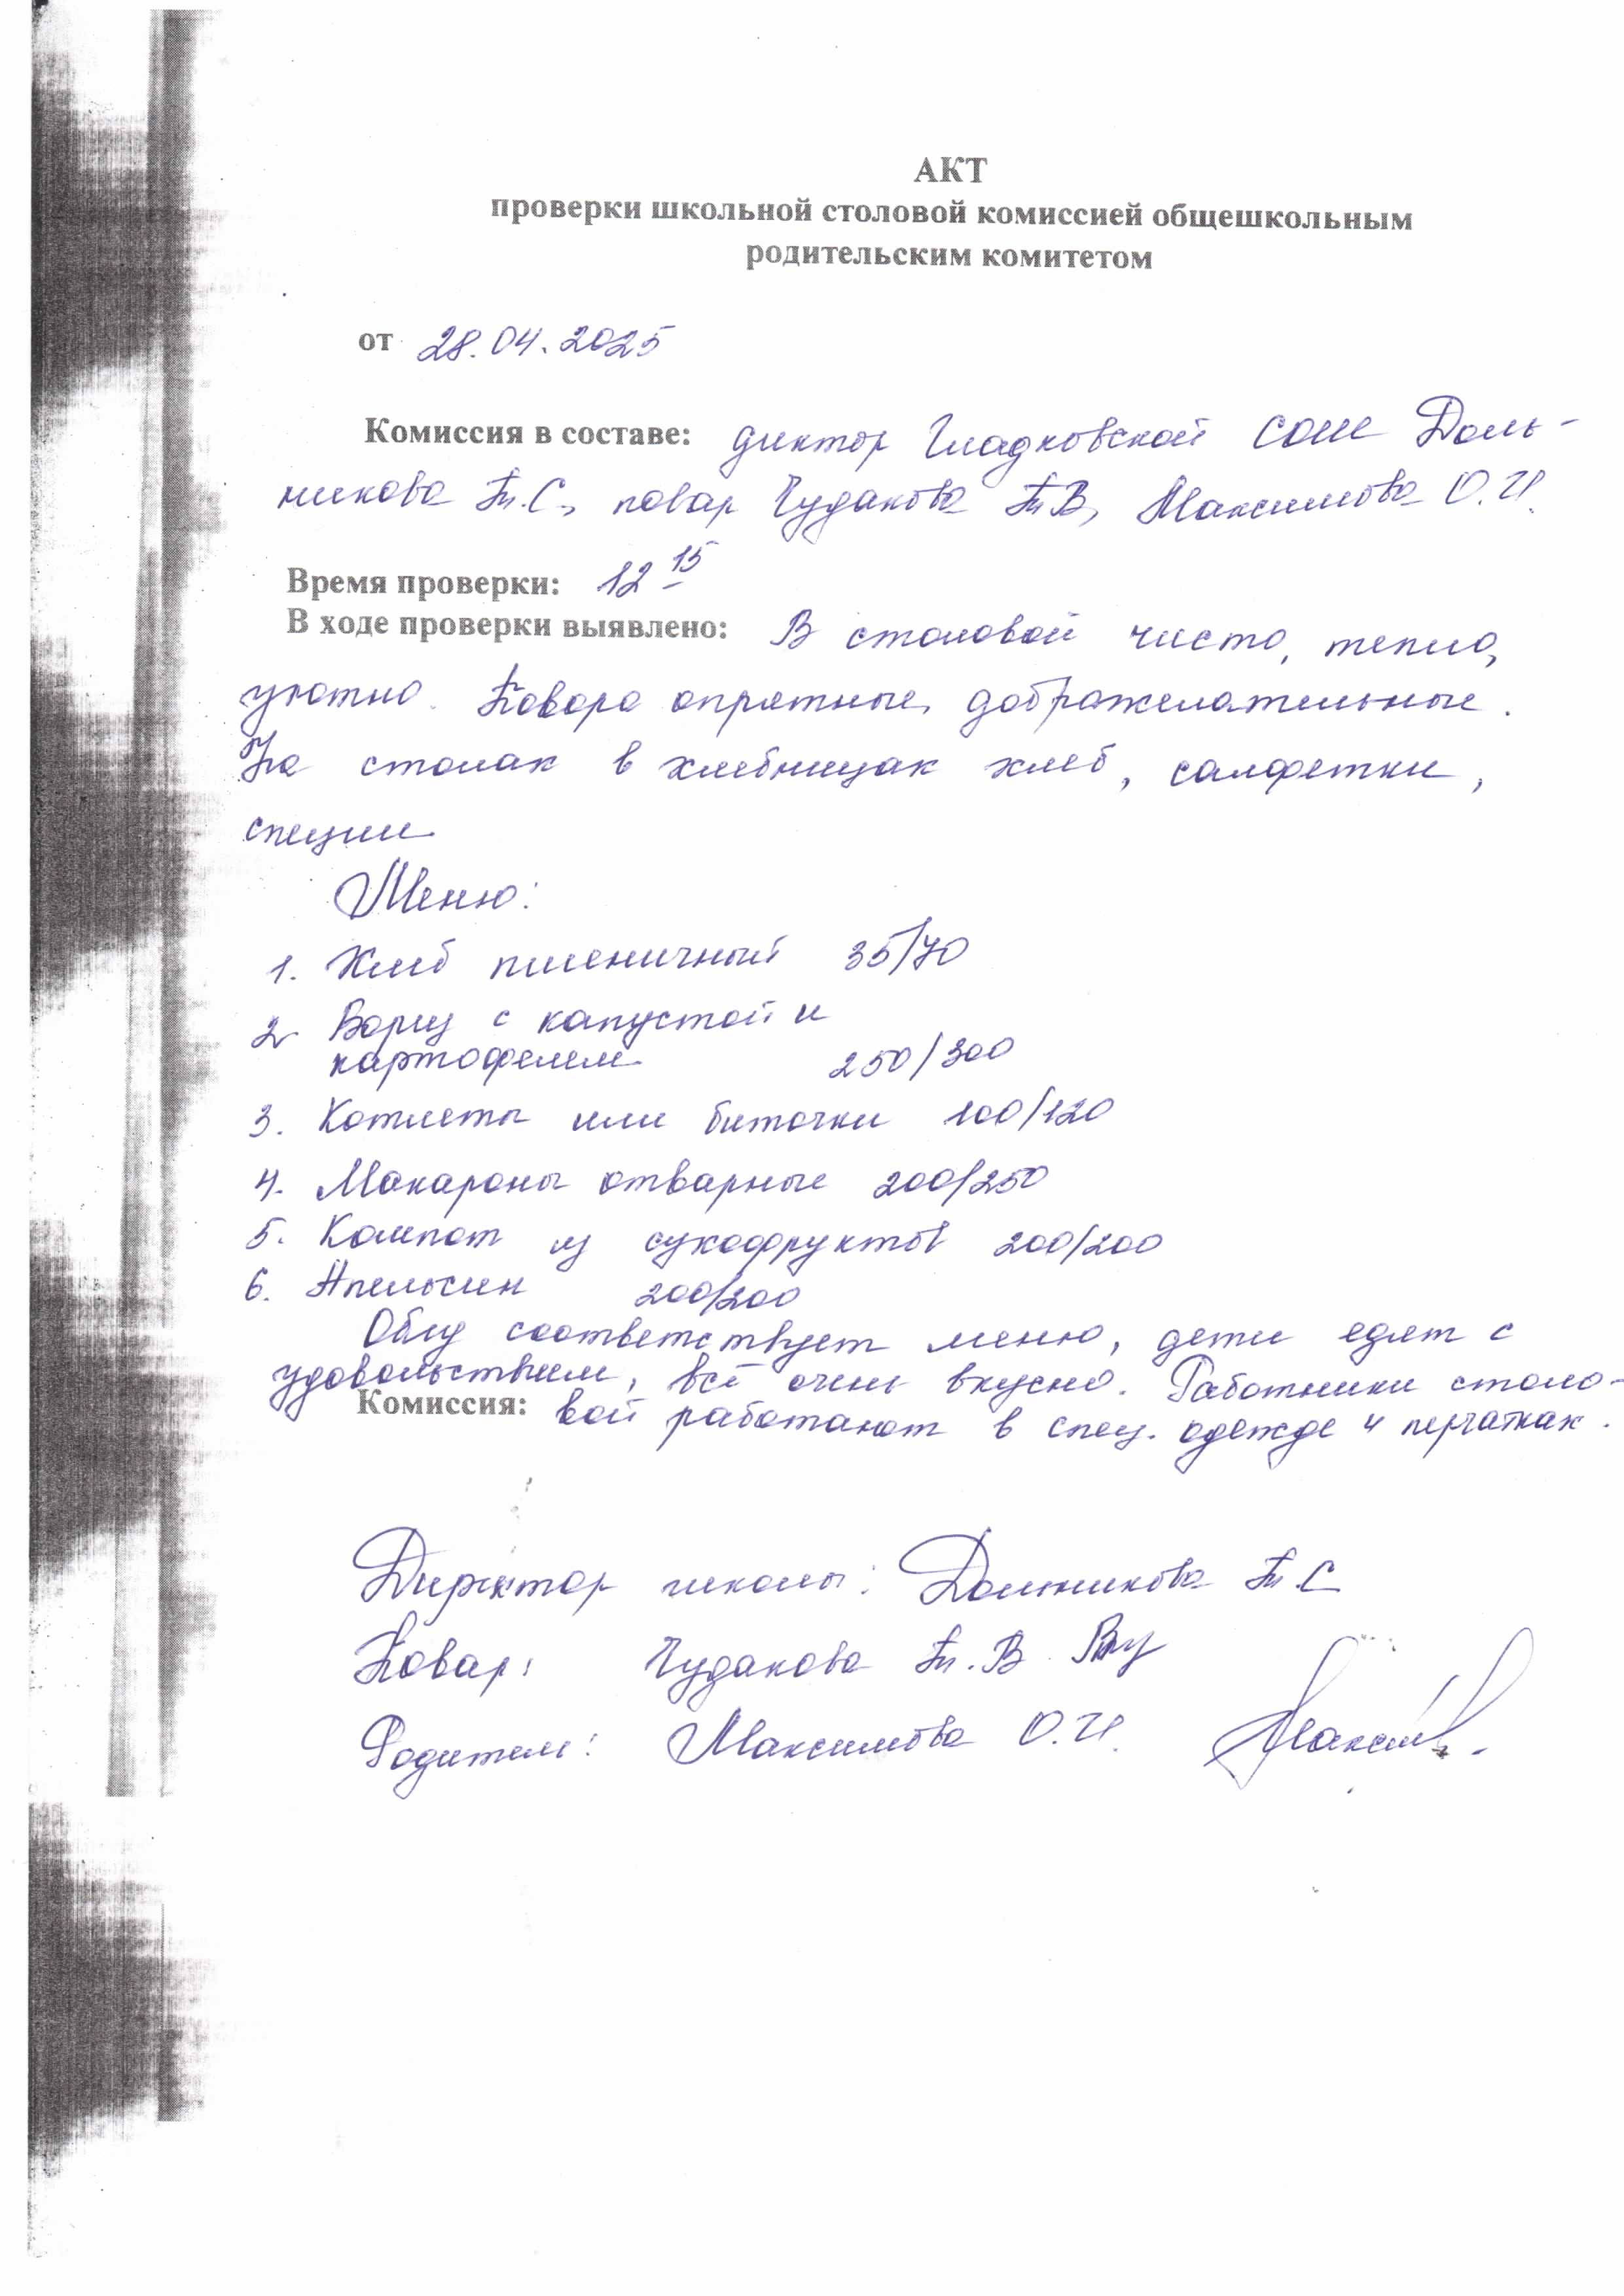 АКТ
проверки школьной столовой комиссией общешкольным
родительским комитетом
от 28.04.2025
Комиссия в составе: диктор Гладковской СОШ Доль-
никова Т.С., повар Чудакова Т.В, Максимова О.И.
Время проверки: 12 15
В ходе проверки выявлено: В столовой чисто, тепло,
уютно. Повара опрятные, доброжелательные.
На столах в хлебницах хлеб, салфетки,
специи
Меню:
1. Хлеб пшеничный 35/70
2. Борщ с капустой и
картофелем 250/300
3. Котлеты или биточки 100/120
4. Макароны отварные 200/250
5. Компот из сухофруктов 200/200
6. Апельсин 200/200
Обед соответствует меню, дети едят с
удовольствием, всё очень вкусно. Работники столо-
Комиссия: вой работают в спец. одежде и перчатках.
Директор школы: Дольникова Т.С
Повар: Чудакова Т.В
Родители: Максимова О.И.